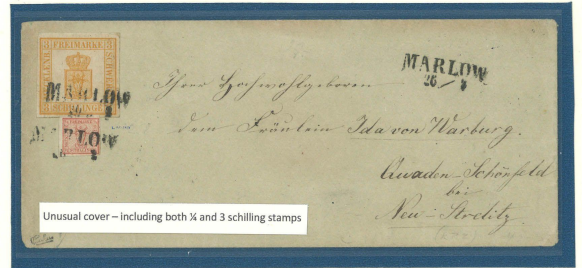 FREIMARKE
SCHILLINGE
MARLOW
26/3
MARLOW
MARLOW
Ihrer Hochwohlgeboren
dem Fräulein Ida von Warburg.
Quaden-Schönfeld
bei
Neu-Strelitz
Unusual cover – including both ¼ and 3 schilling stamps